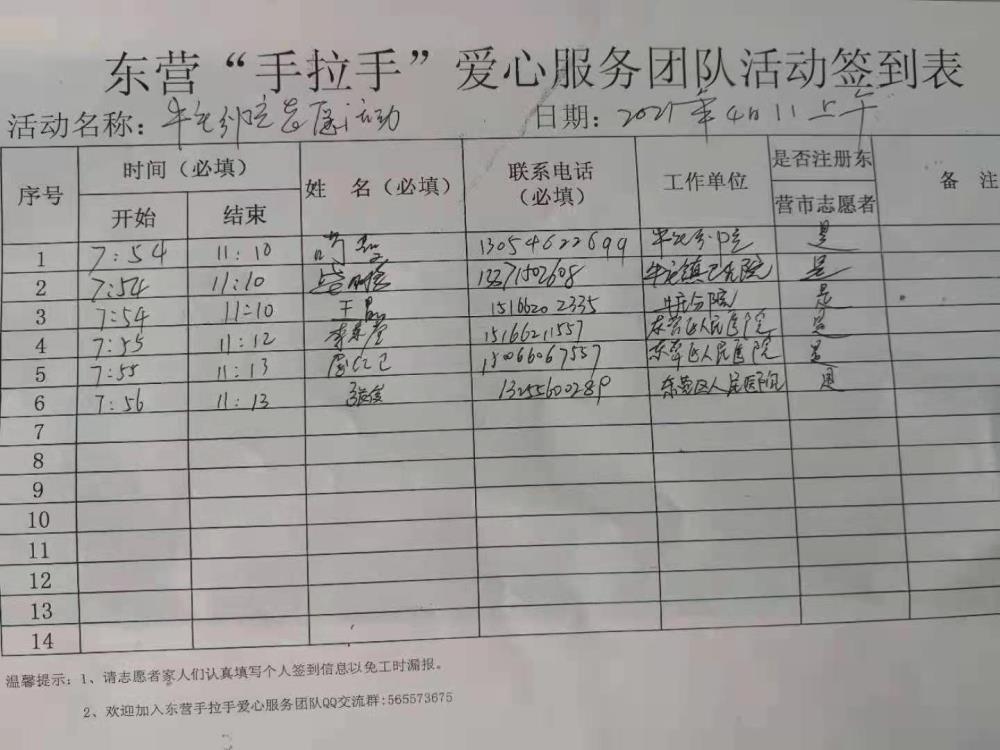 东营“手拉手”爱心服务团队活动签到表
活动名称：牛庄分院志愿活动 日期：2021年4月11上午
序号 时间（必填） 姓 名（必填） 联系电话（必填） 工作单位 是否注册东营市志愿者 备 注
开始 结束
1 7:54 11:10 13054622699 牛庄分院 是
2 7:54 11:10 13371502608 牛庄镇卫生院 是
3 7:54 11:10 王晶 15166202335 牛庄分院 是
4 7:55 11:12 15166211557 东营区人民医院 是
5 7:55 11:13 15066067557 东营区人民医院 是
6 7:56 11:13 13255600289 东营区人民医院 是
7
8
9
10
11
12
13
14
温馨提示：1、请志愿者家人们认真填写个人签到信息以免工时漏报。
2、欢迎加入东营手拉手爱心服务团队QQ交流群:565573675